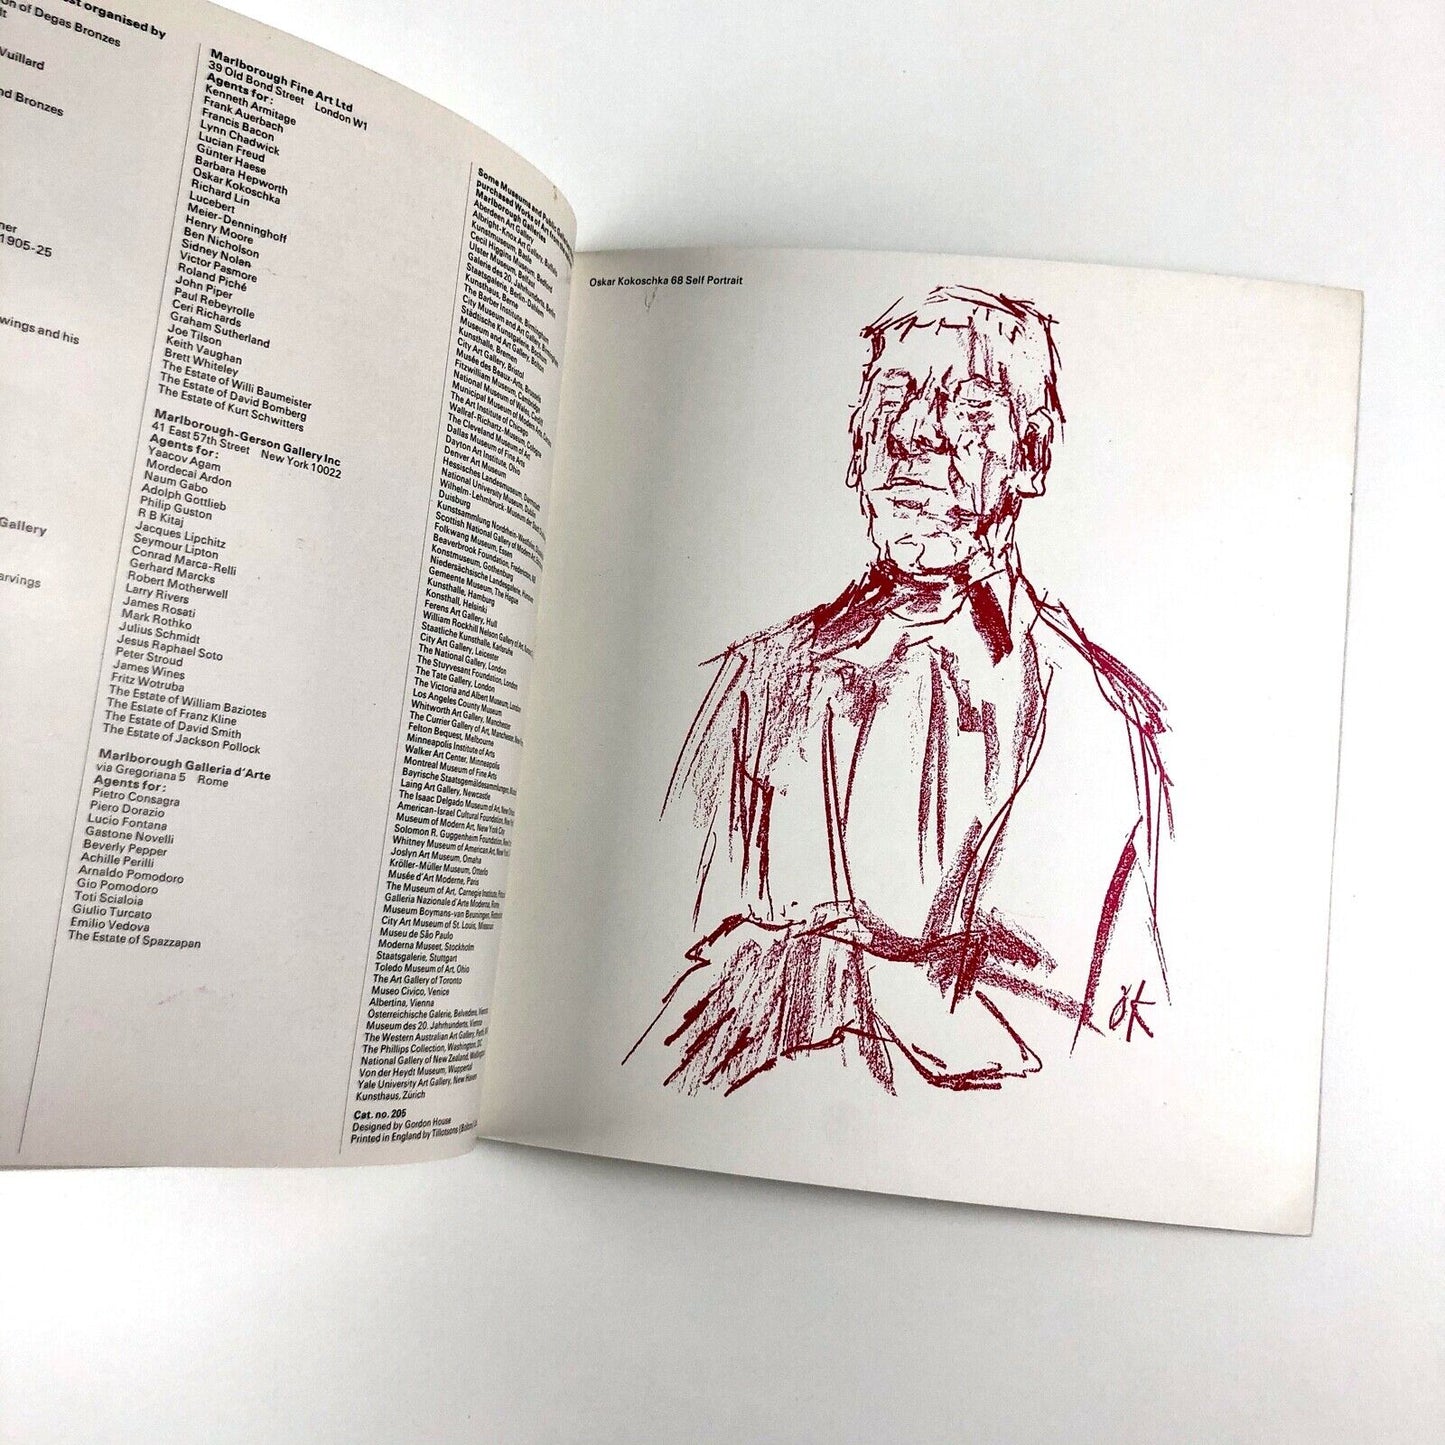 organised by
of Degas Bronzes
Vuillard
Bronzes
1905-25
and his
Gallery
Marlborough Fine Art Ltd
39 Old Bond Street London W1
Agents for:
Kenneth Armitage
Frank Auerbach
Francis Bacon
Lynn Chadwick
Lucian Freud
Günter Haese
Barbara Hepworth
Oskar Kokoschka
Richard Lin
Lucebert
Meier-Denninghoff
Henry Moore
Ben Nicholson
Sidney Nolan
Victor Pasmore
Roland Piché
John Piper
Paul Rebeyrolle
Ceri Richards
Graham Sutherland
Joe Tilson
Keith Vaughan
Brett Whiteley
The Estate of Willi Baumeister
The Estate of David Bomberg
The Estate of Kurt Schwitters
Marlborough-Gerson Gallery Inc
41 East 57th Street New York 10022
Agents for:
Yaacov Agam
Mordecai Ardon
Naum Gabo
Adolph Gottlieb
Philip Guston
R B Kitaj
Jacques Lipchitz
Seymour Lipton
Conrad Marca-Relli
Gerhard Marcks
Robert Motherwell
Larry Rivers
James Rosati
Mark Rothko
Julius Schmidt
Jesus Raphael Soto
Peter Stroud
James Wines
Fritz Wotruba
The Estate of William Baziotes
The Estate of Franz Kline
The Estate of David Smith
The Estate of Jackson Pollock
Marlborough Galleria d'Arte
via Gregoriana 5 Rome
Agents for:
Pietro Consagra
Piero Dorazio
Lucio Fontana
Gastone Novelli
Beverly Pepper
Achille Perilli
Arnaldo Pomodoro
Gio Pomodoro
Toti Scialoia
Giulio Turcato
Emilio Vedova
The Estate of Spazzapan
Some Museums and Public
purchased Works of Art from
Marlborough Galleries
Aberdeen Art Gallery
Albright-Knox Art Gallery, Buffalo
Kunstmuseum, Basle
Cecil Higgins Museum, Bedford
Ulster Museum, Belfast
Galerie des 20. Jahrhunderts, Berlin
Staatsgalerie, Berlin-Dahlem
Kunsthaus, Berne
The Barber Institute, Birmingham
City Museum and Art Gallery, Birmingham
Städtische Kunstgalerie, Bochum
Museum and Art Gallery, Bolton
Kunsthalle, Bremen
City Art Gallery, Bristol
Musée des Beaux-Arts, Brussels
Fitzwilliam Museum, Cambridge
National Museum of Wales, Cardiff
Municipal Museum of Modern Arts,
The Art Institute of Chicago
Wallraf-Richartz-Museum, Cologne
The Cleveland Museum of Art
Dallas Museum of Fine Arts
Dayton Art Institute, Ohio
Denver Art Museum
Hessisches Landesmuseum,
National University Museum, Dublin
Wilhelm-Lehmbruck-Museum der Stadt
Duisburg
Kunstsammlung Nordrhein-Westfalen,
Scottish National Gallery of Modern Art,
Folkwang Museum, Essen
Beaverbrook Foundation, Fredericton,
Konstmuseum, Gothenburg
Niedersächsische Landesgalerie,
Gemeente Museum, The Hague
Kunsthalle, Hamburg
Konsthall, Helsinki
Ferens Art Gallery, Hull
William Rockhill Nelson Gallery of Art,
Staatliche Kunsthalle, Karlsruhe
City Art Gallery, Leicester
The National Gallery, London
The Stuyvesant Foundation, London
The Tate Gallery, London
The Victoria and Albert Museum, London
Los Angeles County Museum
Whitworth Art Gallery, Manchester
The Currier Gallery of Art, Manchester,
Felton Bequest, Melbourne
Minneapolis Institute of Arts
Walker Art Center, Minneapolis
Montreal Museum of Fine Arts
Bayrische Staatsgemäldesammlungen,
Laing Art Gallery, Newcastle
The Isaac Delgado Museum of Art,
American-Israel Cultural Foundation,
Museum of Modern Art, New York City
Solomon R. Guggenheim Foundation,
Whitney Museum of American Art,
Joslyn Art Museum, Omaha
Kröller-Müller Museum, Otterlo
Musée d'Art Moderne, Paris
The Museum of Art, Carnegie Institute,
Galleria Nazionale d'Arte Moderna, Rome
Museum Boymans-van Beuningen,
City Art Museum of St. Louis,
Museu de São Paulo
Moderna Museet, Stockholm
Staatsgalerie, Stuttgart
Toledo Museum of Art, Ohio
The Art Gallery of Toronto
Museo Civico, Venice
Albertina, Vienna
Österreichische Galerie, Belvedere, Vienna
Museum des 20. Jahrhunderts, Vienna
The Western Australian Art Gallery, Perth,
The Phillips Collection, Washington, DC
National Gallery of New Zealand,
Von der Heydt Museum, Wuppertal
Yale University Art Gallery, New Haven
Kunsthaus, Zürich
Cat. no. 205
Designed by Gordon House
Printed in England by Tillotsons (Bolton)
Oskar Kokoschka 68 Self Portrait
OK